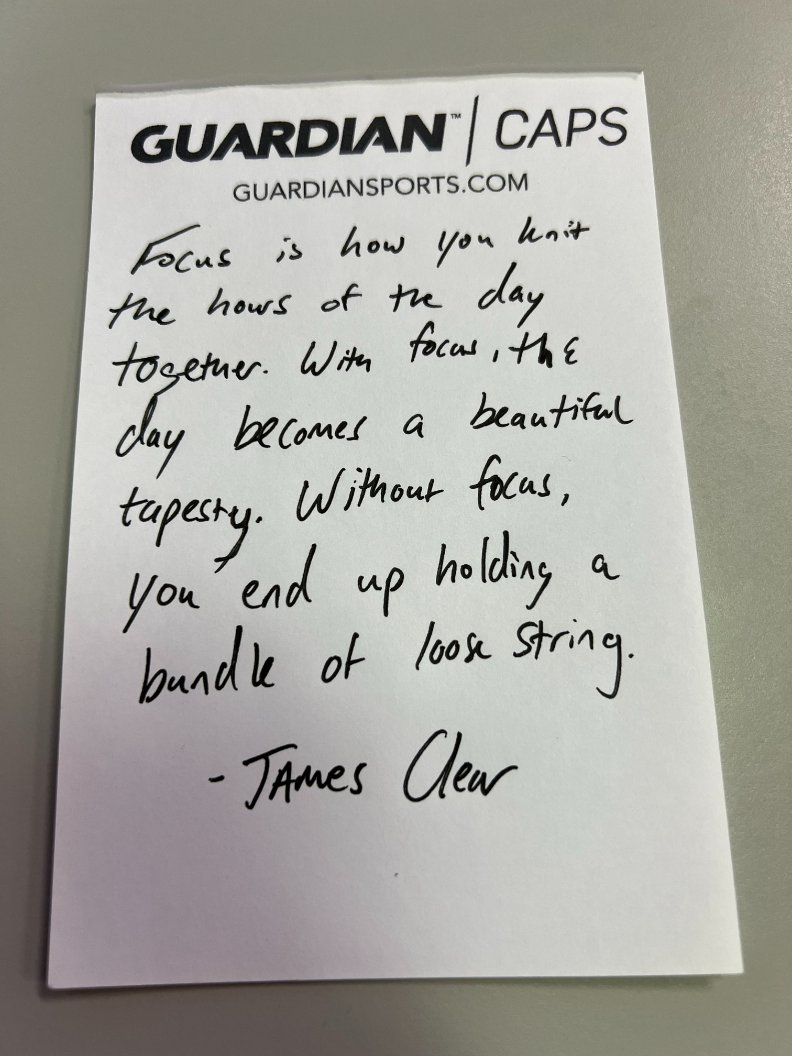 GUARDIAN™ | CAPS
GUARDIANSPORTS.COM
Focus is how you knit
the hours of the day
together. With focus, the
day becomes a beautiful
tapestry. Without focus,
you end up holding a
bundle of loose string.
- JAMES Clear